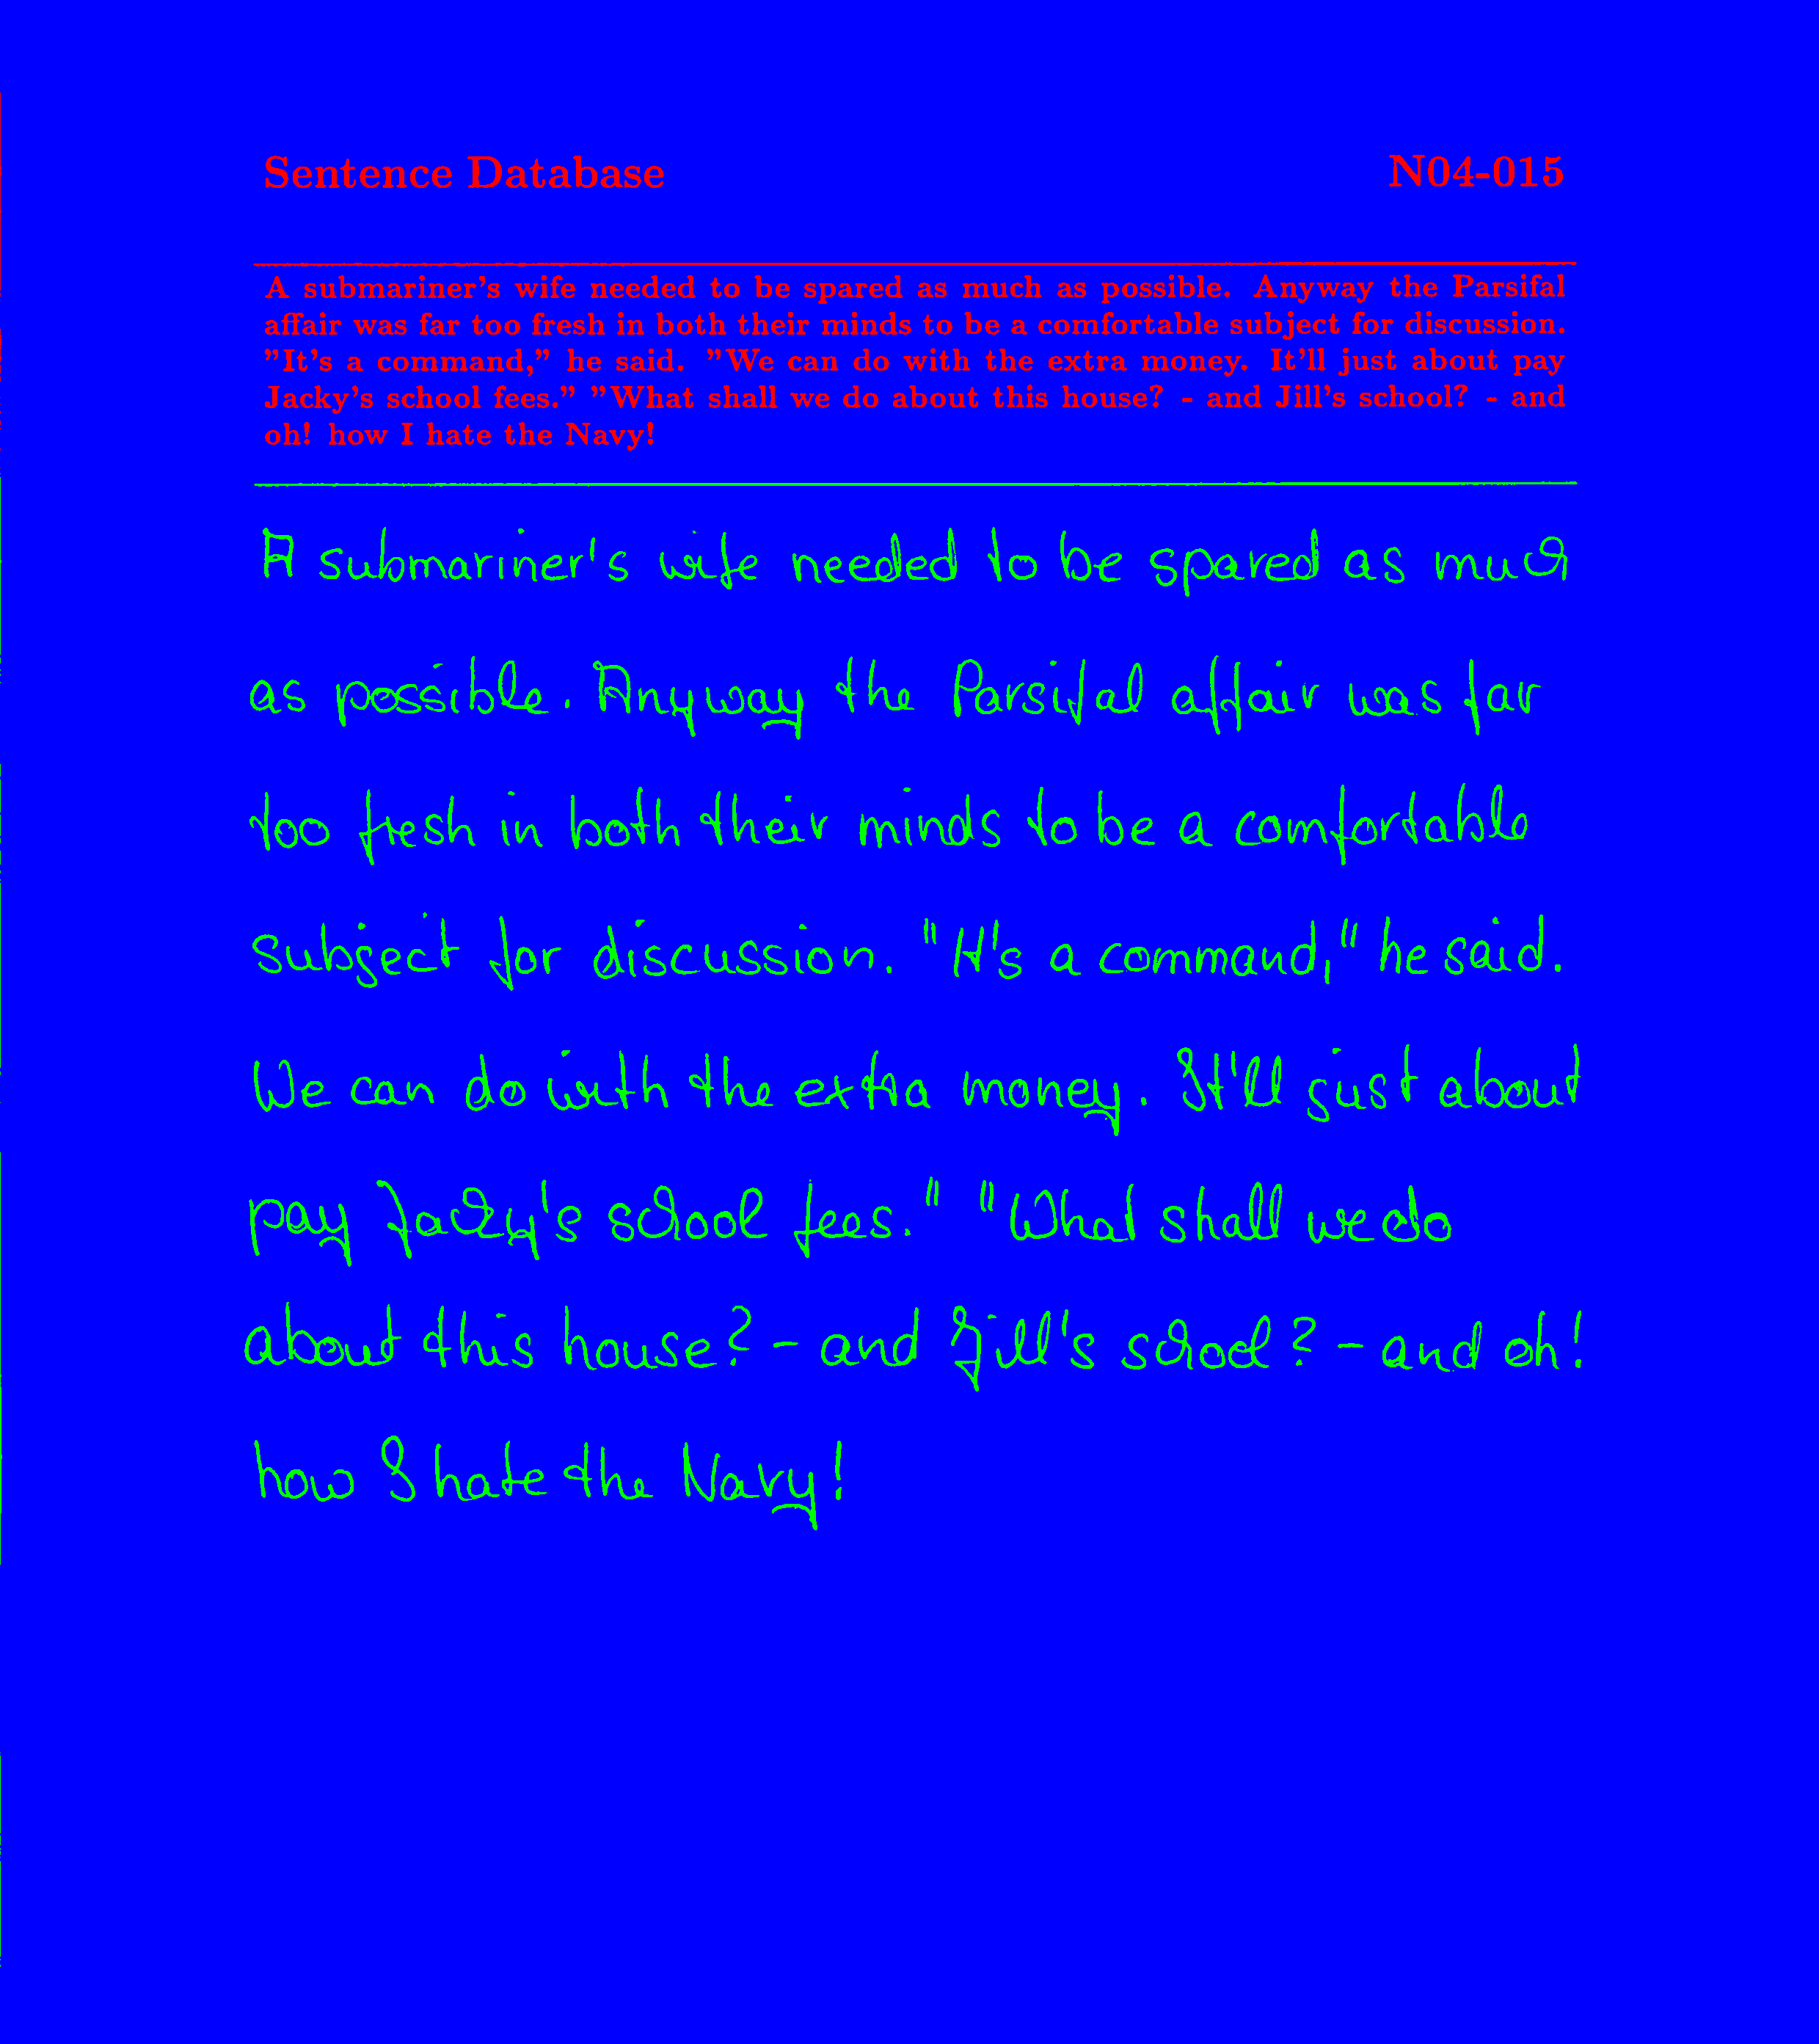 Sentence Database N04-015
A submariner's wife needed to be spared as much as possible. Anyway the Parsifal
affair was far too fresh in both their minds to be a comfortable subject for discussion.
"It's a command," he said. "We can do with the extra money. It'll just about pay
Jacky's school fees." "What shall we do about this house? - and Jill's school? - and
oh! how I hate the Navy!
A submariner's wife needed to be spared as much
as possible. Anyway the Parsifal affair was far
too fresh in both their minds to be a comfortable
subject for discussion. "It's a command," he said.
We can do with the extra money. It'll just about
pay Jacky's school fees." "What shall we do
about this house? - and Jill's school? - and oh!
how I hate the Navy!